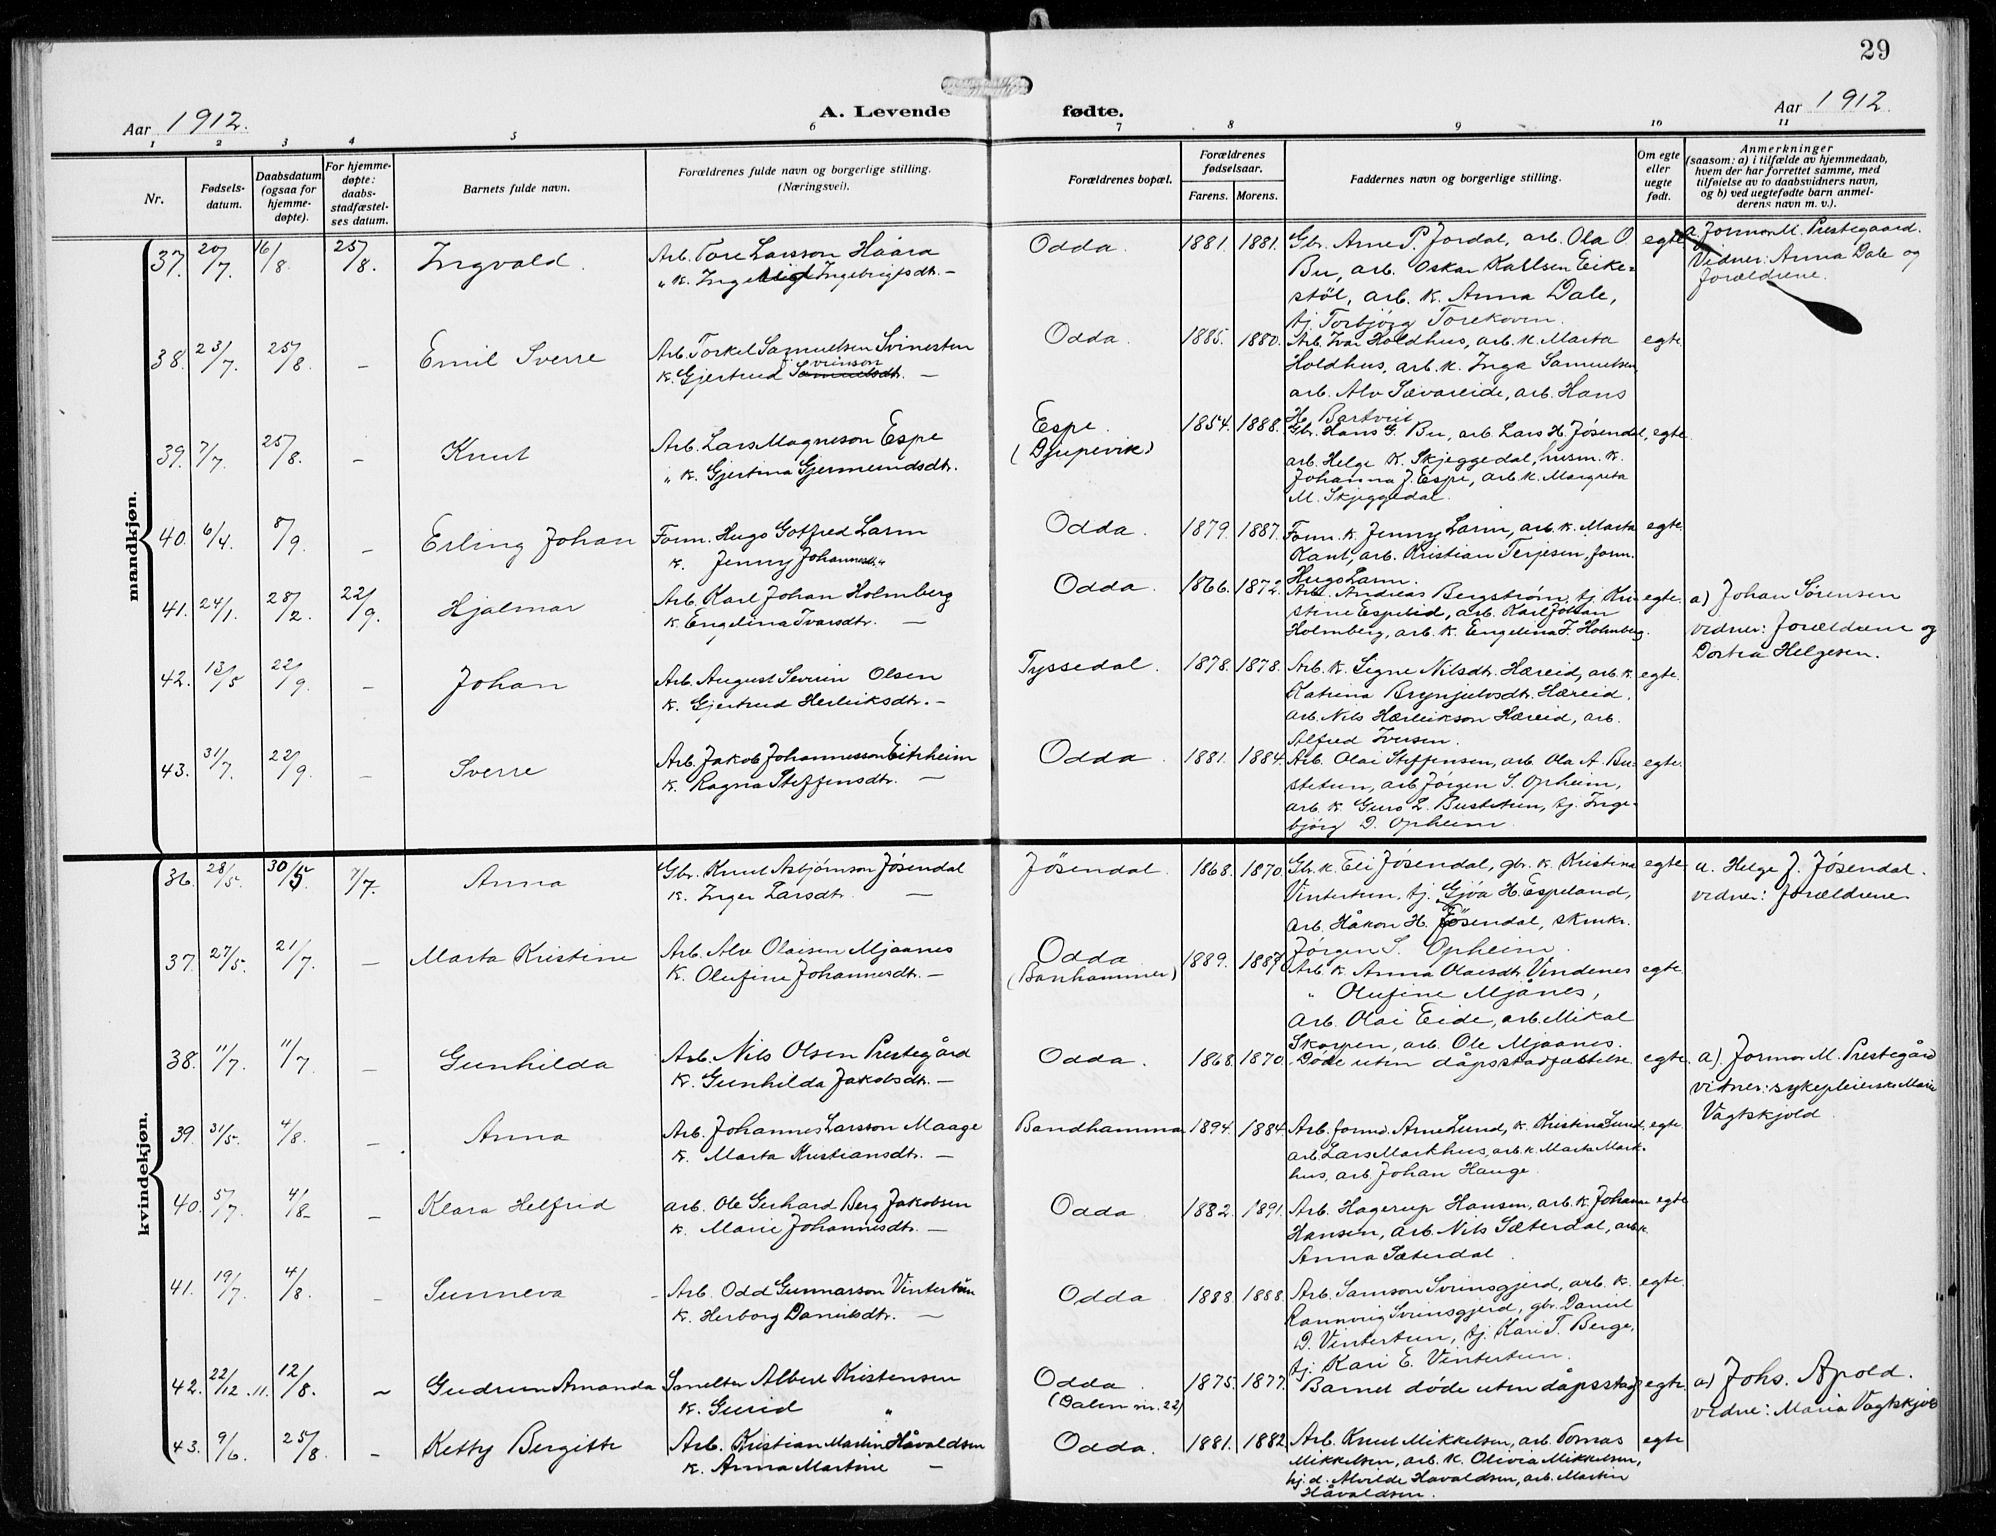 29
Aar 1912.
A. Levende fødte.
Aar 1912
1 2 3 4 5 6 7 8 9 10 11
Nr.
Fødsels-
datum.
Daabsdatum
(ogsaa for
hjemme-
døpte).
For hjemme-
døpte:
daabs-
stadfæstel-
ses datum.
Barnets fulde navn.
Forældrenes fulde navn og borgerlige stilling.
(Næringsvei).
Forældrenes bopæl.
Forældrenes
fødselsaar.
Farens. Morens.
Faddernes navn og borgerlige stilling.
Om egte
eller
uegte
født.
Anmerkninger
(saasom: a) i tilfælde av hjemmedaab,
hvem der har forrettet samme, med
tilføielse av to daabsvidners navn,
og b) ved uegtefødte barn anmel-
derens navn m. v.).
mandkjøn.
37. 20/7 16/8 25/8. Ingvald.
Arb. Tore Larsson Haara
" k. Ingebrigtsdt. —
Odda. 1881. 1881.
Gbr. Arne P. Jordal, arb. Ola O.
Bu, arb. Oskar Karlsen Eike-
støl, arb. k. Anna Dale,
tj. Torbjørg Torekoven.
egte
a. Jormor M. Prestegaard.
Vidner: Anna Dale og
forældrene.
38. 23/7. 25/8. — Emil Sverre
Arb. Torkel Samuelsen Svinesten
k. Gjertrud Samuelsdt. —
Odda. 1885. 1880.
Arb. Ivar Holdhus, arb. k. Marta
Holdhus, arb. k. Inga Samuelsen,
arb. Alv Sævareide, arb. Hans
H. Bartveit
egte
39. 7/7. 25/8. — Knut
Arb. Lars Magneson Espe
" k. Gjertina Gjermundsdt.
Espe.
(Djupevik)
1854. 1888.
Gbr. Hans G. Bu, arb. Lars H. Jøsendal,
arb. Helge K. Skjeggedal, husm. k.
Johanna J. Espe, arb. k. Margreta
M. Skjeggedal.
egte.
40. 6/4. 8/9. — Erling Johan
Form. Hugo Gotfred Larm
k. Jenny Johannesdt.
Odda. 1879. 1887.
Form. k. Jenny Larm, arb. k. Marta
Kant, arb. Kristian Terjesen, form.
Hugo Larm.
egte.
41. 24/1. 28/2. 22/9. Hjalmar
Arb. Karl Johan Holmberg
k. Engelina Ivarsdt. —
Odda. 1866. 1872.
Arb. Andreas Bergstrøm, tj. Kri-
stine Espelid, arb. Karl Johan
Holmberg, arb. k. Engelina F. Holmberg.
egte.
a) Johan Sørensen
vidner: Forældrene og
Dortea Helgesen.
42. 13/5 22/9. — Johan
Arb. August Severin Olsen
k. Gjertrud Herleiksdt. —
Tyssedal. 1878. 1878.
Arb. k. Signe Nilsdt. Hæreid, arb. k.
Katrina Brynjulvsdt. Hæreid,
arb. Nils Hærleikson Hæreid, arb.
Alfred Iversen.
egte.
43. 31/7. 22/9. — Sverre
Arb. Jakob Johannesson Eitrheim
k. Ragna Steffensdt. —
Odda. 1881. 1884.
Arb. Olai Steffensen, arb. Ola A. Bu-
stetun, arb. Jørgen S. Opheim,
arb. k. Guro L. Bustetun, tj. Inge-
bjørg D. Opheim.
egte.
kvindekjøn.
36. 28/5. 30/5. 7/7. Anna
Gbr. Knut Asbjørnson Jøsendal
k. Inger Larsdt. —
Jøsendal. 1868. 1870.
Gbr. k. Eli Jøsendal, gbr. k. Kristina
Vintertun, tj. Gjøa H. Espeland,
arb. Håkon H. Jøsendal, skmkr.
Jørgen S. Opheim.
egte.
a. Helge J. Jøsendal.
vidner: forældrene
37. 27/5. 21/7. — Marta Kristine
Arb. Alv Olaisen Mjaanes
k. Olufine Johannesdt. —
Odda
(Banhammer)
1889. 1887.
Arb. k. Anna Olaisdt. Vindenes
" Olufine Mjånes,
arb. Olai Eide, arb. Mikal
Skorpen, arb. Ole Mjaanes.
egte.
38. 11/7. 11/7 — Gunhilda
Arb. Nils Olsen Prestegård
k. Gunhilda Jakobsdt. —
Odda. 1868. 1870.
Døde uten dåpsstadfæstelse
egte.
a) Jormor M. Prestegård
vidner: sykepleierske Marie
Vagtskjold.
39. 31/5. 4/8. — Anna
Arb. Johannes Larsson Maage
k. Marta Kristiansdt. —
Bandhamma 1894. 1884.
Arb. formd. Arne Lund, k. Kristina Lund,
arb. Lars Markhus, arb. k. Marta Mark-
hus, arb. Johan Hauge.
egte.
40. 5/7. 4/8 — Klara Helfrid
arb. Ole Gerhard Berg Jakobsen
k. Marie Johannesdt. —
Odda. 1882. 1891.
Arb. Hagerup Hansen, arb. k. Johanne
Hansen, arb. Nils Sæterdal, arb. k.
Anna Sæterdal.
egte
41. 19/7. 4/8. — Sunneva
Arb. Odd Gunnarson Vintertun
k. Herborg Danielsdt. —
Odda 1888. 1888.
Arb. Samson Svinsgjerd, arb. k.
Rannveig Svinsgjerd, gbr. Daniel
D. Vintertun, tj. Kari T. Berge,
tj. Kari E. Vintertun.
egte.
42. 22/12 .11. 12/8. — Gudrun Amanda
Smelter Albert Kristensen
k. Gurid "
Odda.
(Dalen nr. 22)
1875. 1877.
Barnet døde uten dåpsstadf
egte.
a) Johs. Apold.
vidne: Maria Vagtskjold
43. 9/6. 25/8. — Ketty Bergitte
Arb. Kristian Martin Håvaldsen
k. Anna Martine —
Odda. 1881. 1882
Arb. Knut Mikkelsen, arb. Tomas
Mikkelsen, arb. k. Olivia Mikkelsen,
hj. d. Alvilde Håvaldsen, arb. Martin
Håvaldsen.
egte